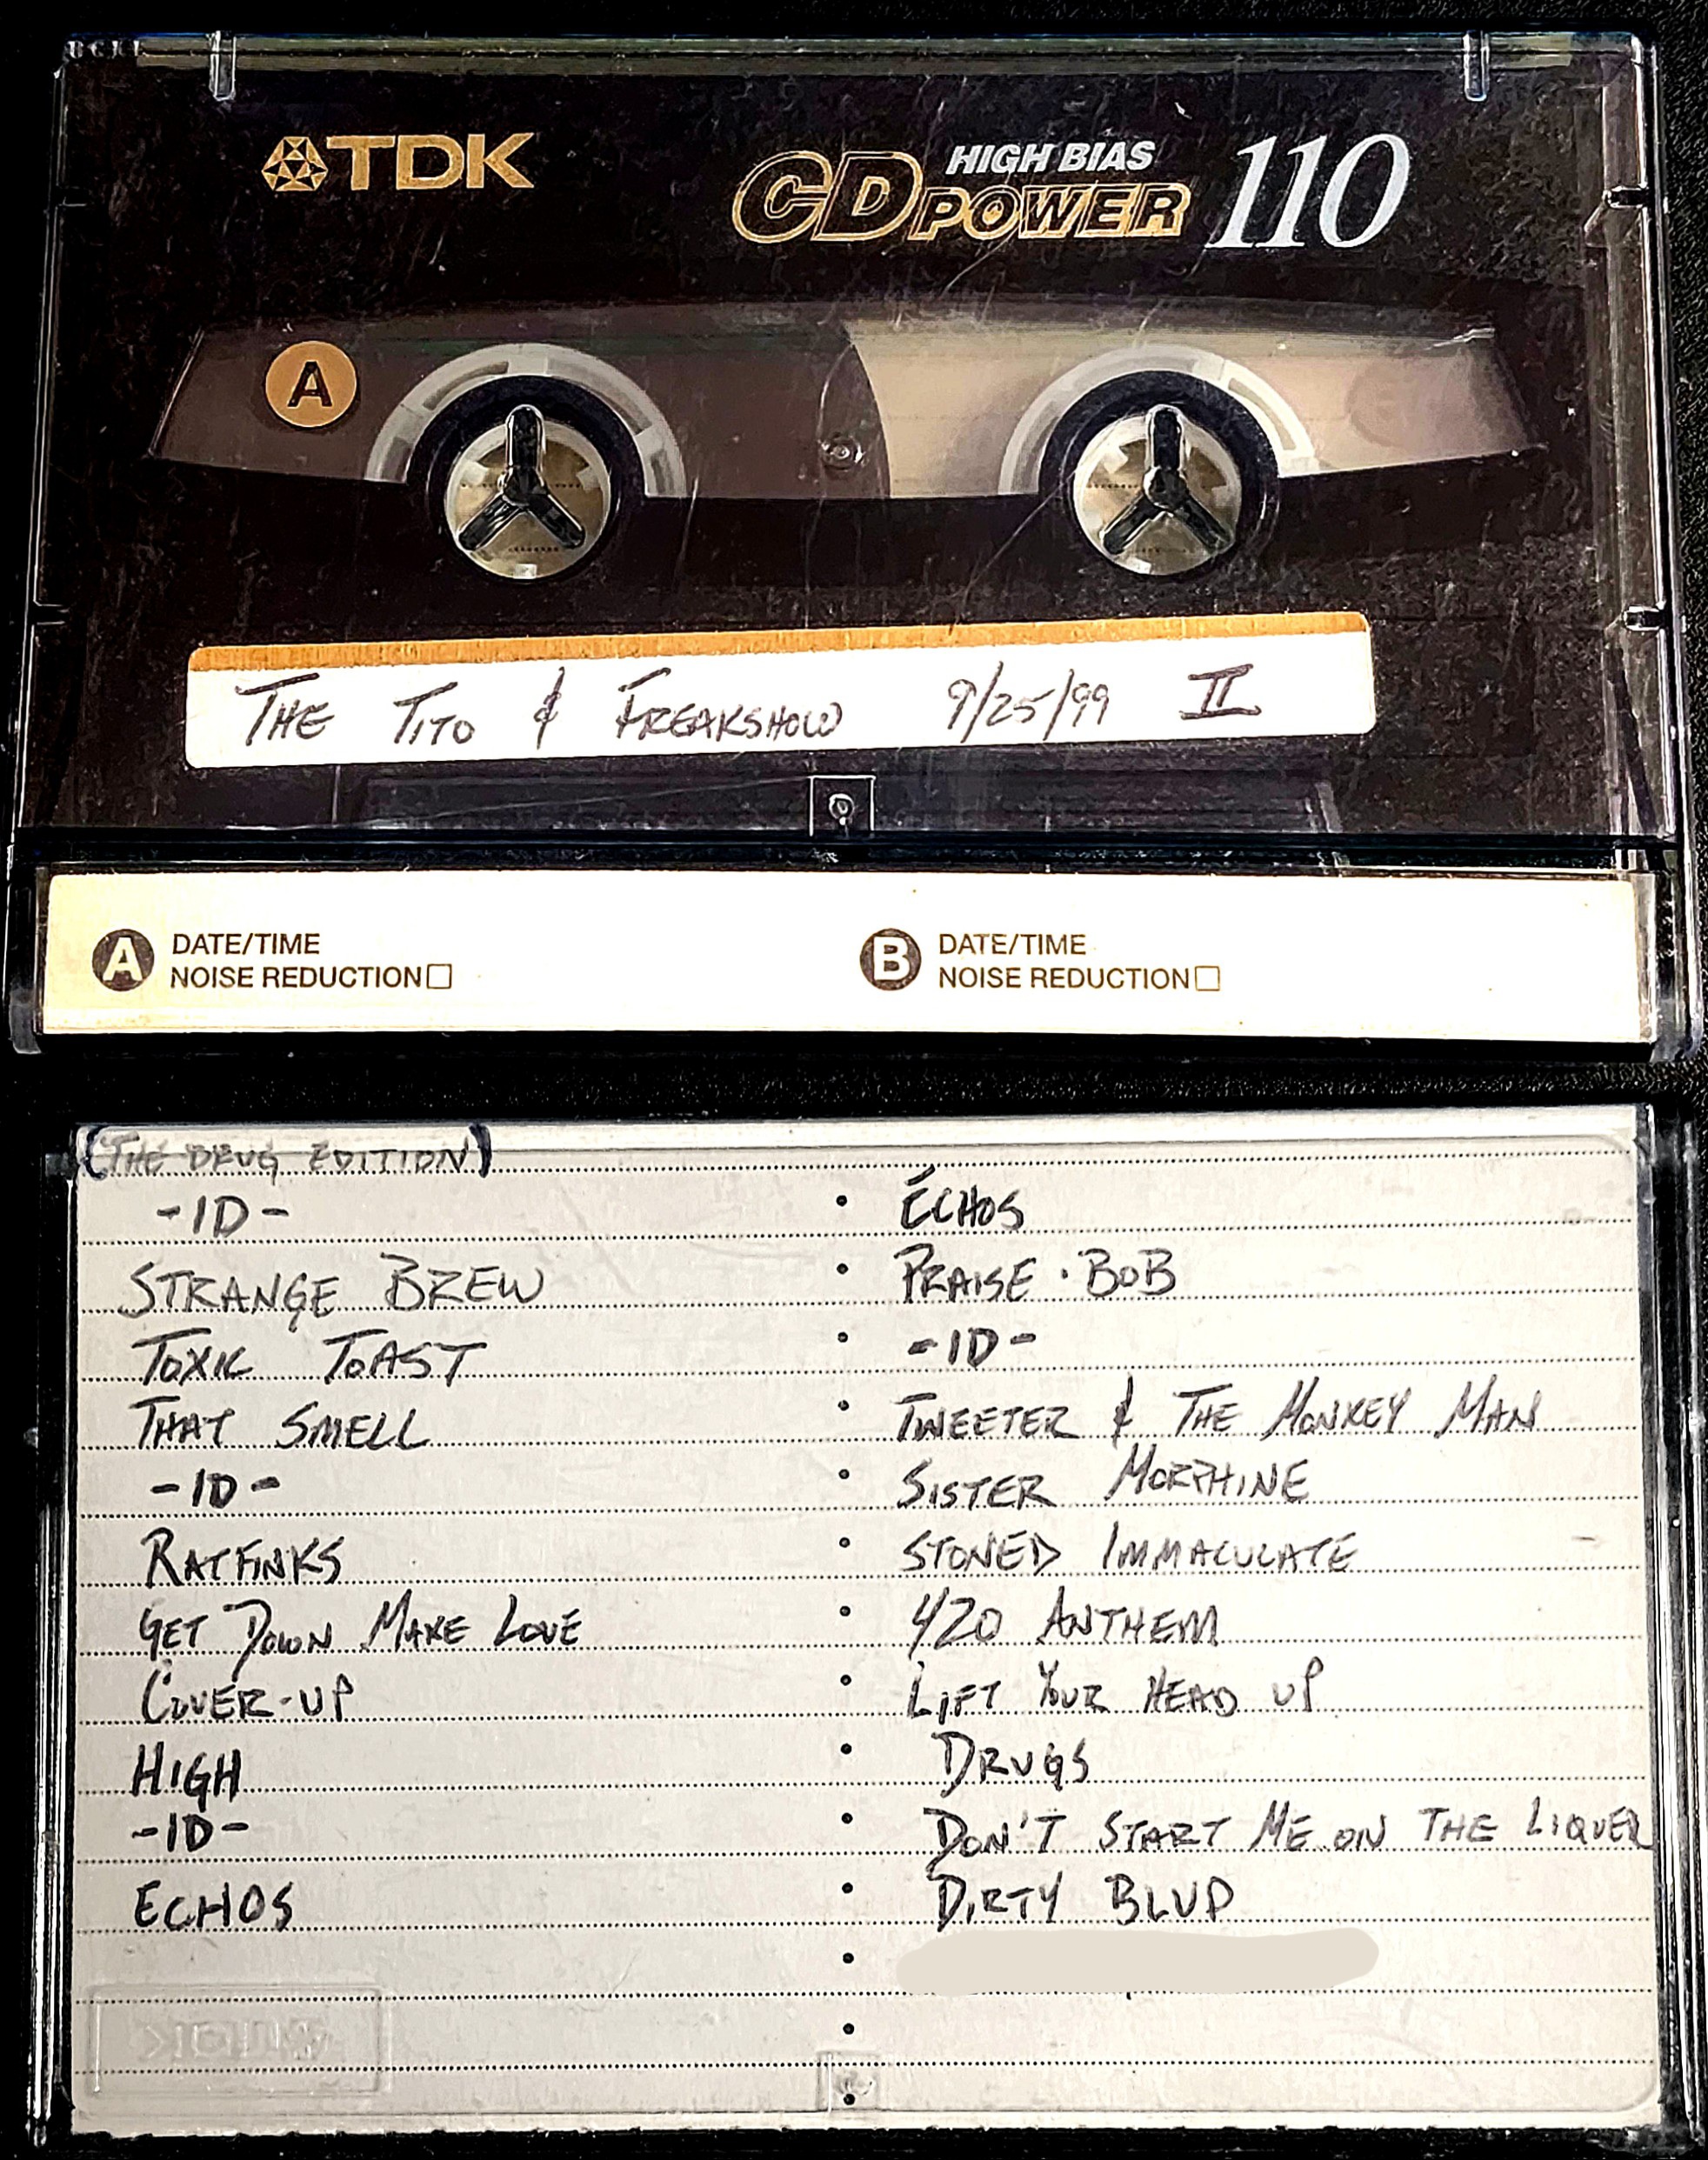 TDK
HIGH BIAS
CD POWER 110
A
THE TITO & FREAKSHOW 9/25/99 II
A DATE/TIME
NOISE REDUCTION
B DATE/TIME
NOISE REDUCTION
(THE DRUG EDITION)
-ID-
STRANGE BREW
TOXIC TOAST
THAT SMELL
-ID-
RATFINKS
GET DOWN MAKE LOVE
COVER-UP
HIGH
-ID-
ECHOS
ECHOS
PRAISE · BOB
-ID-
TWEETER & THE MONKEY MAN
SISTER MORPHINE
STONED IMMACULATE
420 ANTHEM
LIFT YOUR HEAD UP
DRUGS
DON'T START ME ON THE LIQUER
DIRTY BLVD
TDK